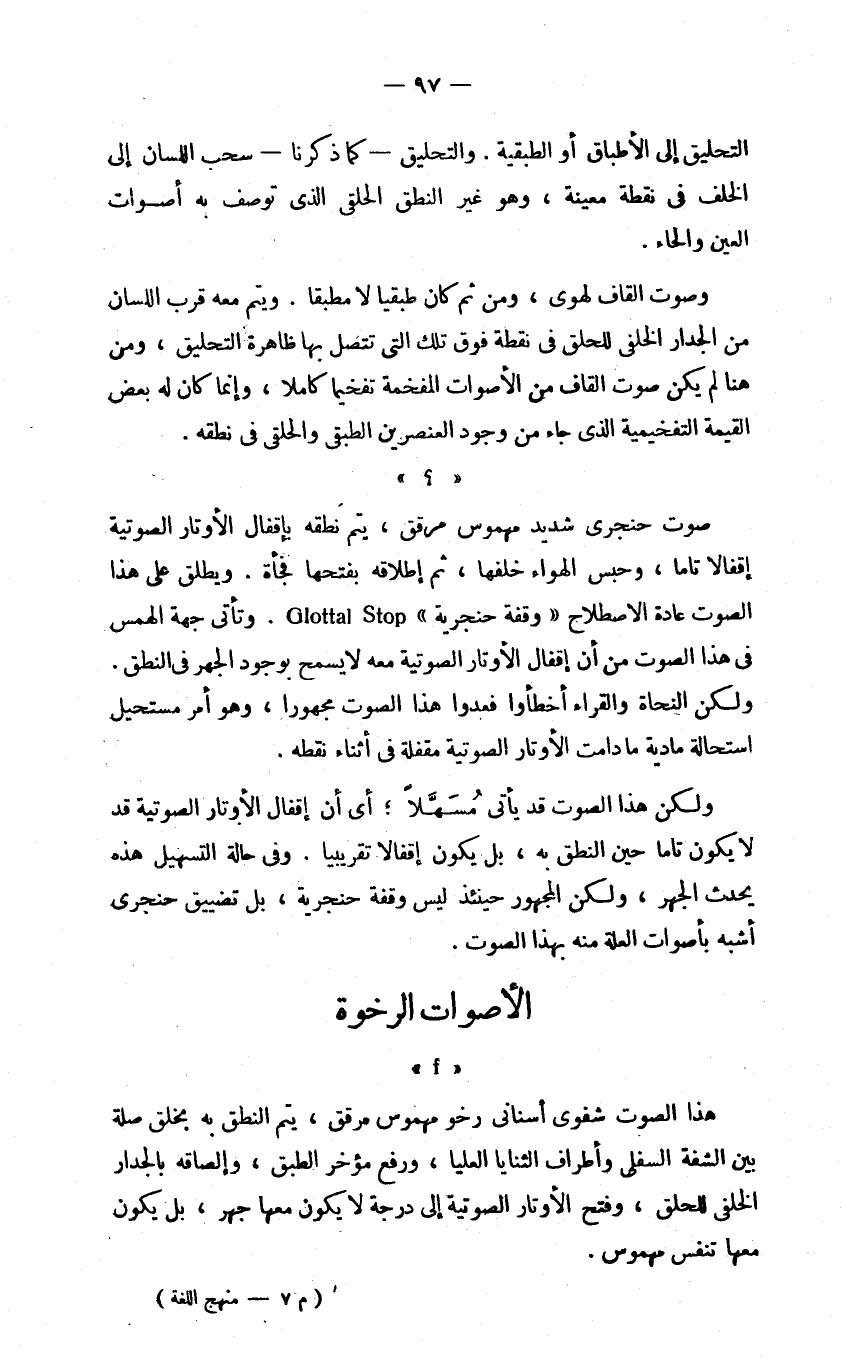 — ٩٧ —
التحليق إلى الأطباق أو الطبقية . والتحليق — كما ذكرنا — سحب اللسان إلى
الخلف فى نقطة معينة ، وهو غير النطق الحلقى الذى توصف به أصـوات
العين والحاء .
وصوت القاف لهوى ، ومن ثم كان طبقيا لا مطبقا . ويتم معه قرب اللسان
من الجدار الخلفى للحلق فى نقطة فوق تلك التى تتصل بها ظاهرة التحليق ، ومن
هنا لم يكن صوت القاف من الأصوات المفخمة تفخيما كاملا ، وإنما كان له بعض
القيمة التفخيمية الذى جاء من وجود العنصرين الطبقى والحلقى فى نطقه .
« ʕ »
صوت حنجرى شديد مهموس مرقق ، يتم نطقه بإقفال الأوتار الصوتية
إقفالا تاما ، وحبس الهواء خلفها ، ثم إطلاقه بفتحها فجأة . ويطلق على هذا
الصوت عادة الاصطلاح « وقفة حنجرية » Glottal Stop . وتأتى جهة الهمس
فى هذا الصوت من أن إقفال الأوتار الصوتية معه لايسمح بوجود الجهر فى النطق .
ولـكن النحاة والقراء أخطأوا فعدوا هذا الصوت مجهورا ، وهو أمر مستحيل
استحالة مادية مادامت الأوتار الصوتية مقفلة فى أثناء نقطه .
ولـكن هذا الصوت قد يأتى مُسَـهَّـلاً ؛ أى أن إقفال الأوتار الصوتية قد
لا يكون تاما حين النطق به ، بل يكون إقفالا تقريبيا . وفى حالة التسهيل هذه
يحدث الجهر ، ولـكن المجهور حينئذ ليس وقفة حنجرية ، بل تضييق حنجرى
أشبه بأصوات العلة منه بهذا الصوت .
الأصوات الرخوة
« f »
هذا الصوت شفوى أسنانى رخو مهموس مرقق ، يتم النطق به بخلق صلة
بين الشفة السفلى وأطراف الثنايا العليا ، ورفع مؤخر الطبق ، وإلصاقه بالجدار
الخلفى للحلق ، وفتح الأوتار الصوتية إلى درجة لا يكون معها جهر ، بل يكون
معها تنفس مهموس .
( م ٧ — منهج اللغة )